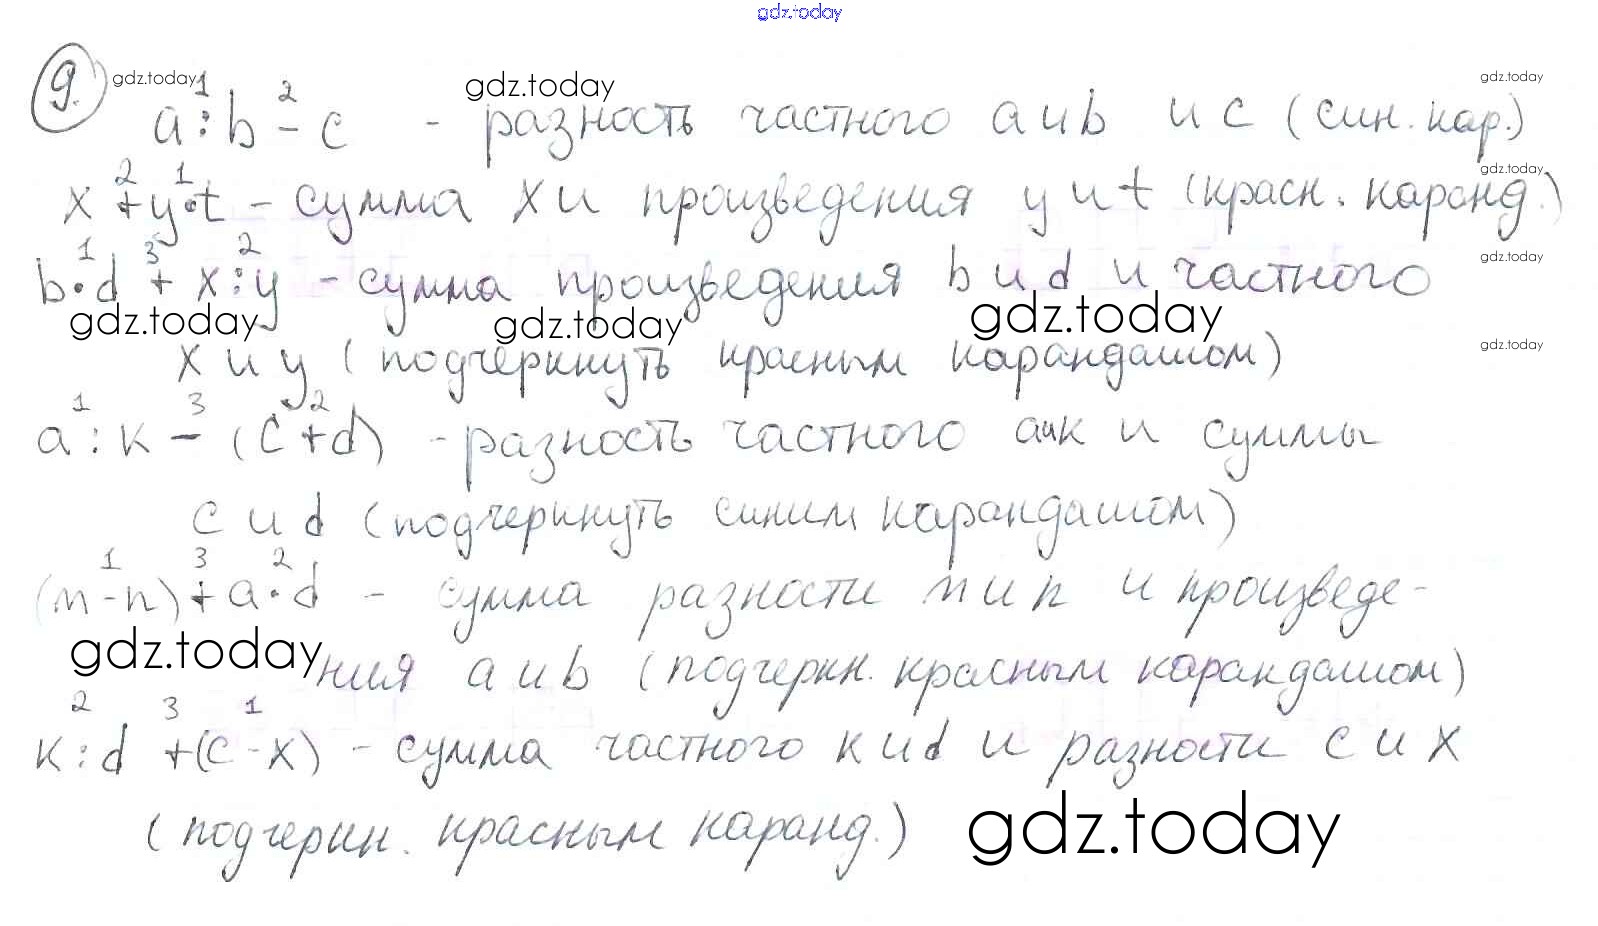 gdz.today
9. gdz.today 1 gdz.today 2 gdz.today
a : b - c - разность частного a и b и c (син. кар.)
2 1 gdz.today
x + y · t - сумма x и произведения y и t (красн. каранд.)
1 3 2 gdz.today
b · d + x : y - сумма произведения b и d и частного
gdz.today gdz.today gdz.today gdz.today
x и y (подчеркнуть красным карандашом)
1 3 2
a : к - (c + d) - разность частного a и к и суммы
c и d (подчеркнуть синим карандашом)
1 3 2
(m - n) + a · d - сумма разности m и n и произведе-
gdz.today ния a и b (подчеркн. красным карандашом)
2 3 1
к : d + (c - x) - сумма частного к и d и разности c и x
(подчеркн. красным каранд.) gdz.today